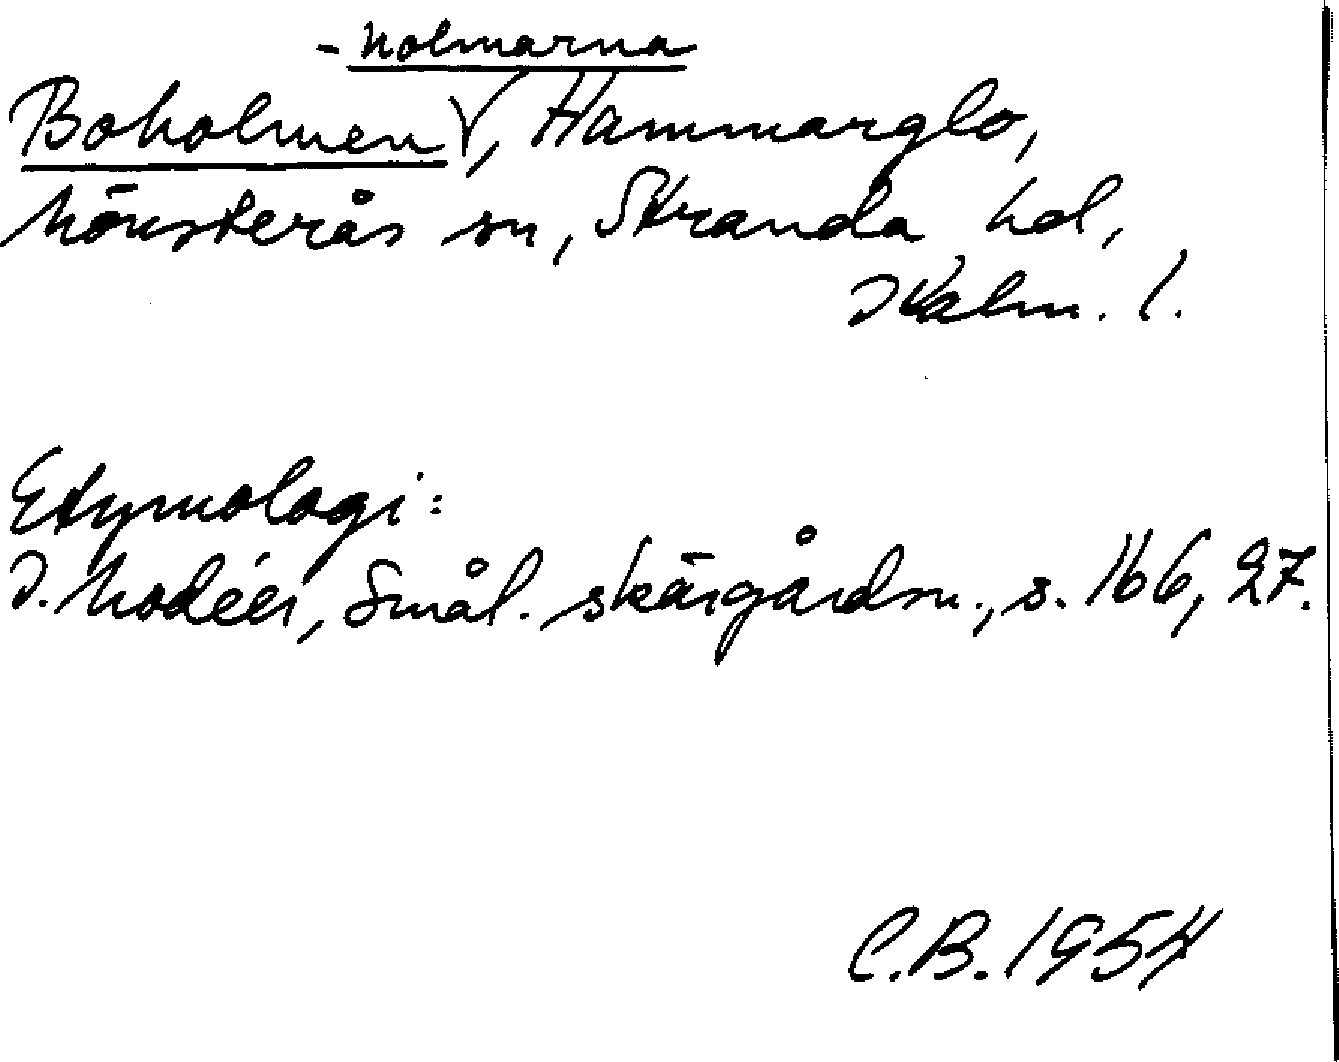 -holmarna
Boholmen, Hammarglo,
Mönsterås sn, Stranda hd,
Kalm. l.
Etymologi:
I. Modéer, Smål. skärgårdsn., s. 166, 27.
C.B. 1954